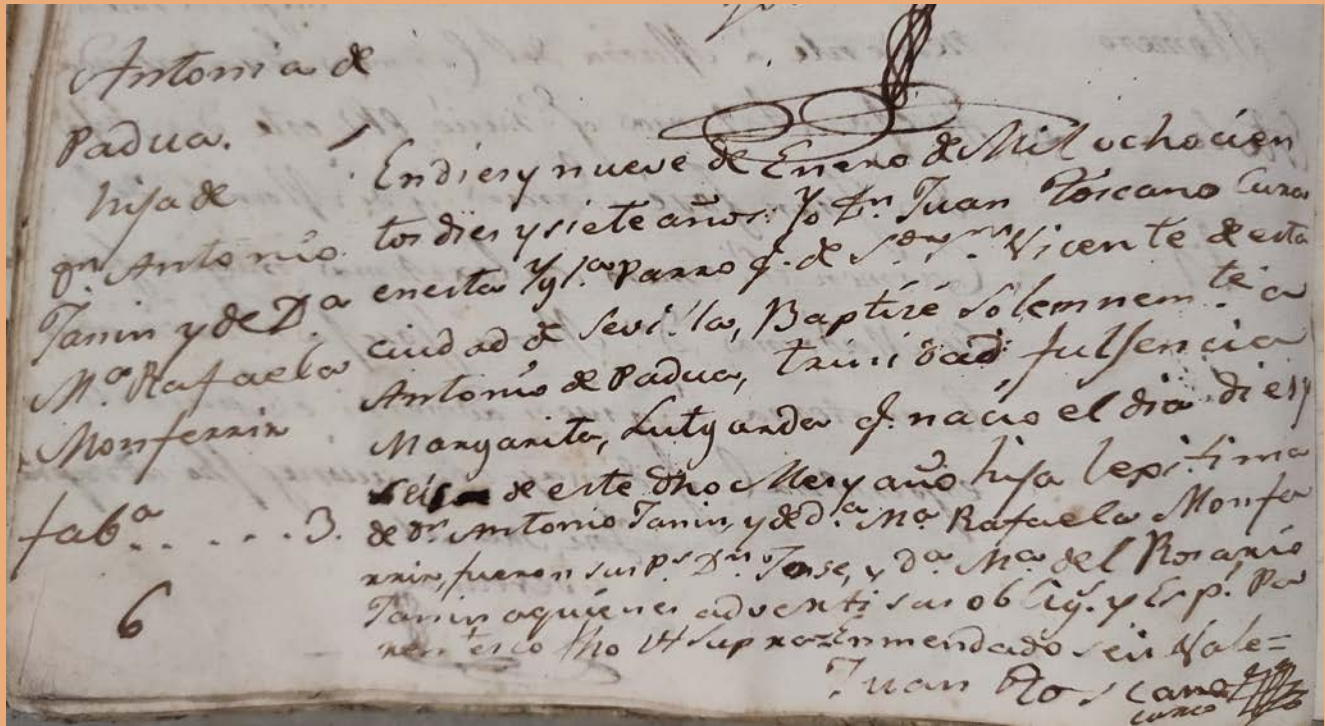 Antonia de
Padua.
hija de
Dn. Antonio
Tanin y de D.a
M.a Rafaela
Monferrin
fab.a . . . . . 3.
6
En dies y nueve de Enero de Mil ochocien
tos dies y siete años: Yo Dn. Juan Toscano Cura
en esta Ygl.a Parroq. de Sr. Sn. Vicente de esta
ciudad de Sevilla, Baptizé solemnem.te a
Antonio de Padua, trinidad, fulgencia
Margarita, Lutgarda q. nacio el dia dies y
seis de este dho Mes y año hija legitima
de Dn. Antonio Tanin, y de D.a M.a Rafaela Monfe
rrin, fueron sus P.s Dn. Jose, y D.a M.a del Rosario
Tanin a quienes adverti su obLig. y Esp. Pa
rentesco fho Ut supra=Enmendado=seis Vale=
Juan Toscano
cura